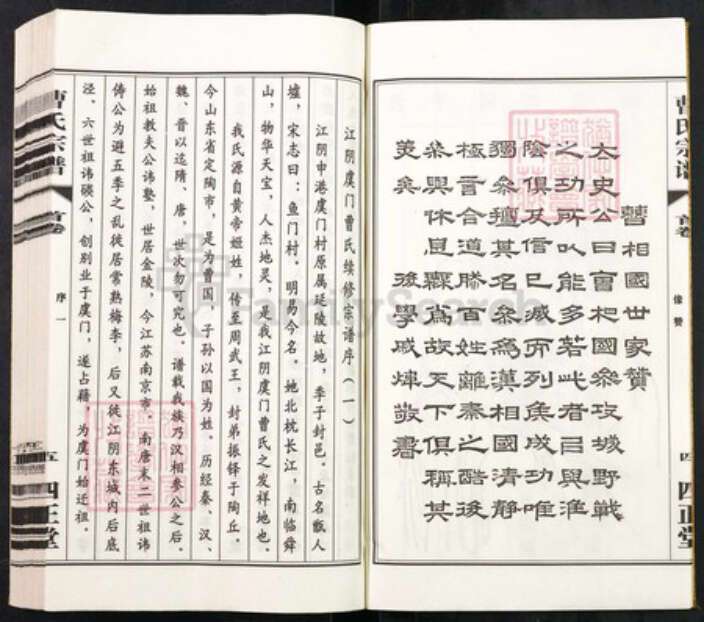 曹氏宗谱
首卷
像赞
四
四正堂
曹相國世家贊
太史公曰曹相國參攻城野戰
之功所以能多若此者以與淮
陰侯俱及信已滅而列侯成功唯
獨參擅其名參為漢相國清靜
極言合道然百姓離秦之酷後
參與休息無為故天下俱稱其
美矣 後學戚煒敬書
江阴虞门曹氏续修宗谱序（一）
江阴申港虞门村原属延陵故地，季子封邑。古名甑人
墟，宋志曰：鱼门村。明易今名。她北枕长江，南临舜
山，物华天宝，人杰地灵，是我江阴虞门曹氏之发祥地也。
我氏源自黄帝姬姓，传至周武王，封弟振铎于陶丘。
今山东省定陶市，是为曹国，子孙以国为姓。历经秦、汉、
魏、晋以迄隋、唐，世次勿可究也。谱载我族乃汉相参公之后。
始祖教夫公讳塾，世居金陵，今江苏南京市。南唐末二世祖讳
俦公为避五季之乱徙居常熟梅李，后又徙江阴东城内后底
泾、六世祖讳磏公，创别业于虞门，遂占籍，为虞门始迁祖。
曹氏宗谱
首卷
序一
五
四正堂
FamilySearch